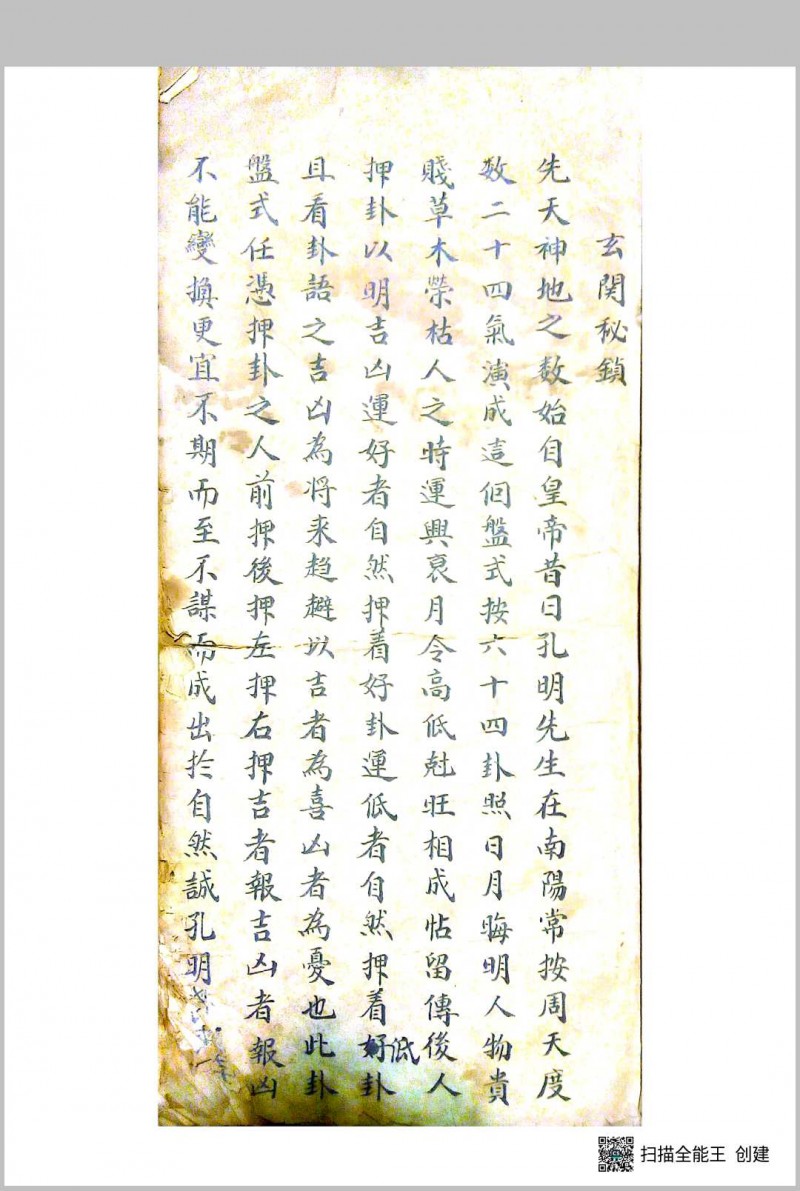 玄関秘鎖
先天神地之数始自皇帝昔日孔明先生在南陽常按周天度
数二十四氣演成這個盤式按六十四卦照日月晦明人物貴
賤草木榮枯人之時運興衰月令高低尅旺相成帖留傳後人
押卦以明吉凶運好者自然押着好卦運低者自然押着低卦
且看卦語之吉凶為将来趋避以吉者為喜凶者為憂也此卦
盤式任憑押卦之人前押後押左押右押吉者報吉凶者報凶
不能變換更宜不期而至不謀而成出於自然誠孔明
扫描全能王 创建